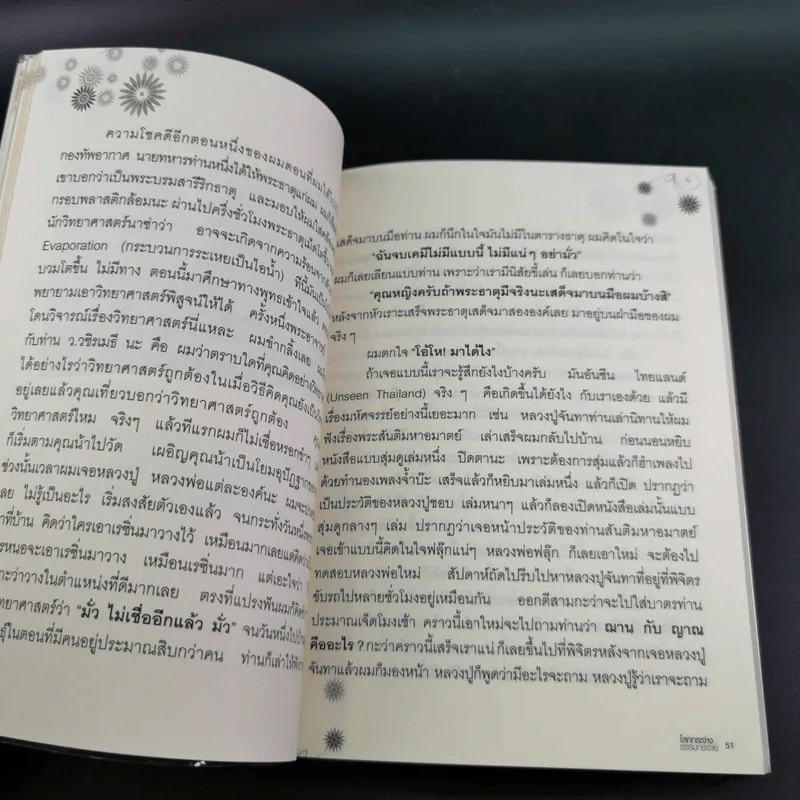 ความโชคดีอีกตอนหนึ่งของผมตอนที่ผมได้
กองทัพอากาศ นายทหารท่านหนึ่งได้ให้พระธาตุแก่ผม
เขาบอกว่าเป็นพระบรมสารีริกธาตุ และมอบให้ผมใส่
กรอบพลาสติกล้อมนะ ผ่านไปครึ่งชั่วโมงพระธาตุเม็ดโตขึ้น
นักวิทยาศาสตร์นาซ่าว่า อาจจะเกิดจากความร้อนจาก
Evaporation (กระบวนการระเหยเป็นไอน้ำ) ทีนี้มันเป็น
บวมโตขึ้น ไม่มีทาง ตอนนี้มาศึกษาทางพุทธเข้าใจแล้ว
พยายามเอาวิทยาศาสตร์พิสูจน์ให้ได้ ครั้งหนึ่งพระอาจารย์
โดนวิจารณ์เรื่องวิทยาศาสตร์นี่แหละ ผมขำกลิ้งเลย
กับท่าน ว.วชิรเมธี นะ คือ ผมว่าตราบใดที่คุณคิดอย่าง
ได้อย่างไรว่าวิทยาศาสตร์ถูกต้องในเมื่อวิธีคิดคุณยังเป็น
อยู่เลยแล้วคุณเที่ยวบอกว่าวิทยาศาสตร์ถูกต้อง
วิทยาศาสตร์ไหม จริงๆ แล้วทีแรกผมก็ไม่เชื่อหรอกซ้ำๆ
ก็เริ่มตามคุณน้าไปวัด เผอิญคุณน้าเป็นโยมอุปัฏฐาก
ช่วงนั้นเวลาผมเจอหลวงปู่ หลวงพ่อแต่ละองค์นะ ผมจะ
เลย ไม่รู้เป็นอะไร เริ่มสงสัยตัวเองแล้ว จนกระทั่งวันหนึ่ง
าที่บ้าน คิดว่าใครเอาเรซิ่นมาวางไว้ เหมือนมากเลยแต่คิดว่า
รหนอจะเอาเรซิ่นมาวาง เหมือนเรซิ่นมาก แต่เอะใจว่า
าะว่าวางในตำแหน่งที่ดีมากเลย ตรงที่แปรงฟันผมก็คิด
ทยาศาสตร์ว่า "มั่ว ไม่เชื่ออีกแล้ว มั่ว" จนวันหนึ่งไป
ธุ์ในตอนที่มีคนอยู่ประมาณสิบกว่าคน ท่านก็เล่าให้ฟัง
เสด็จมาบนมือท่าน ผมก็นึกในใจมันไม่มีในตารางธาตุ ผมคิดในใจว่า
"ฉันจบเคมีไม่มีแบบนี้ ไม่มีแน่ๆ อย่ามั่ว"
ผมก็เลยเลียนแบบท่าน เพราะว่าเรามีนิสัยขี้เล่น ก็เลยบอกท่านว่า
"คุณหญิงครับถ้าพระธาตุมีจริงนะเสด็จมาบนมือผมบ้างสิ"
หลังจากหัวเราะเสร็จพระธาตุเสด็จมาสององค์เลย มาอยู่บนฝ่ามือของผม
จริงๆ
ผมตกใจ "โอ้โห! มาได้ไง"
ถ้าเจอแบบนี้เราจะรู้สึกยังไงบ้างครับ มันอันซีน ไทยแลนด์
(Unseen Thailand) จริงๆ คือเกิดขึ้นได้ยังไง กับเราเองด้วย แล้วมี
เรื่องมหัศจรรย์อย่างนี้เยอะมาก เช่น หลวงปู่จันทาท่านเล่านิทานให้ผม
ฟังเรื่องพระสันติมหาอมาตย์ เล่าเสร็จผมกลับไปบ้าน ก่อนนอนหยิบ
หนังสือแบบสุ่มดูเล่มหนึ่ง ปิดตานะ เพราะต้องการสุ่มแล้วก็ฮำเพลงไป
ด้วยทำนองเพลงจ้ำบ๊ะ เสร็จแล้วก็หยิบมาเล่มหนึ่ง แล้วก็เปิด ปรากฏว่า
เป็นประวัติของหลวงปู่ชอบ เล่มหนาๆ แล้วก็ลองเปิดหนังสือเล่มนั้นแบบ
สุ่มดูกลางๆ เล่ม ปรากฏว่าเจอหน้าประวัติของท่านสันติมหาอมาตย์
เจอเข้าแบบนี้คิดในใจฟลุ๊กแน่ๆ หลวงพ่อฟลุ๊ก ก็เลยเอาใหม่ จะต้องไป
ทดสอบหลวงพ่อใหม่ สัปดาห์ถัดไปรีบไปหาหลวงปู่จันทาที่อยู่ที่พิจิตร
ขับรถไปหลายชั่วโมงอยู่เหมือนกัน ออกตีสามกะว่าจะไปใส่บาตรท่าน
ประมาณเจ็ดโมงเช้า คราวนี้เอาใหม่จะไปถามท่านว่า ฌาน กับ ญาณ
คืออะไร ? กะว่าคราวนี้เสร็จเราแน่ ก็เลยขึ้นไปที่พิจิตรหลังจากเจอหลวงปู่
จันทาแล้วผมก็มองหน้า หลวงปู่ก็พูดว่ามีอะไรจะถาม หลวงปู่รู้ว่าเราจะถาม
โลกกระจ่าง
ธรรมกระจาย 51